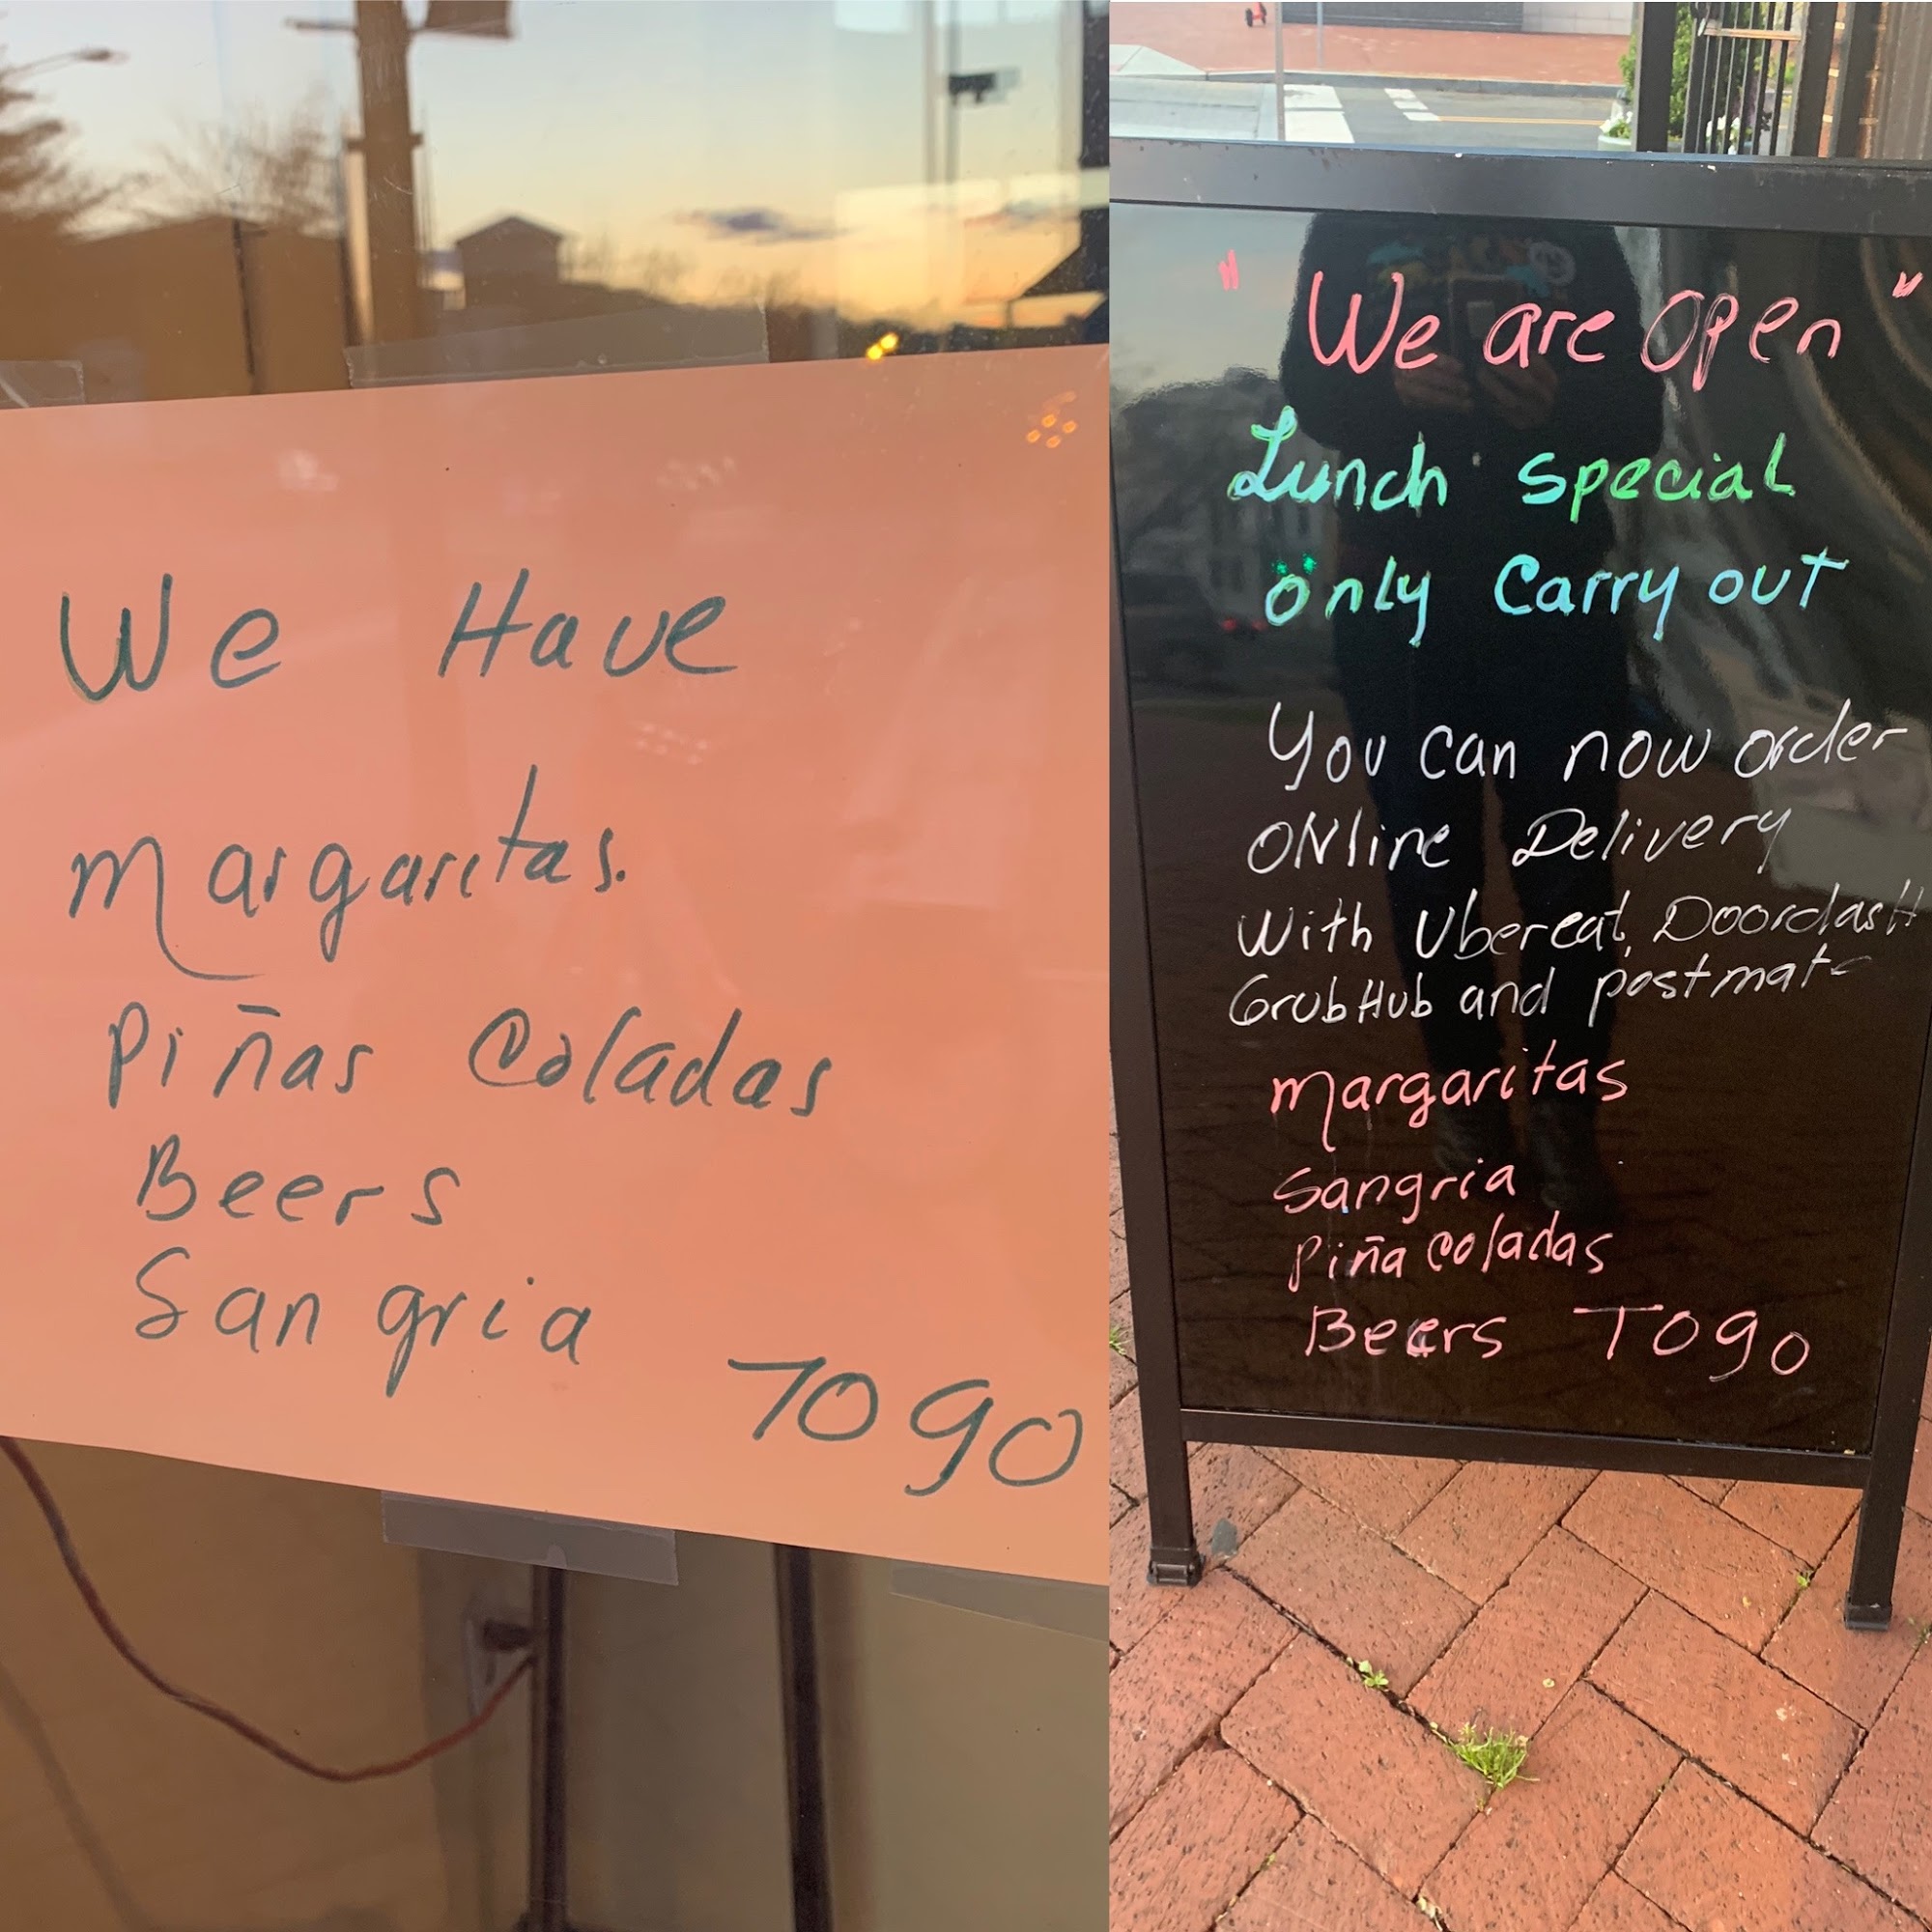 We Have
Margaritas.
Piñas Coladas
Beers
Sangria
TO go
" We are open "
Lunch special
only Carry out
You can now order
ONline Delivery
With Ubereat, DoordasH
GrubHub and postmate
Margaritas
Sangria
Piña coladas
Beers TO go